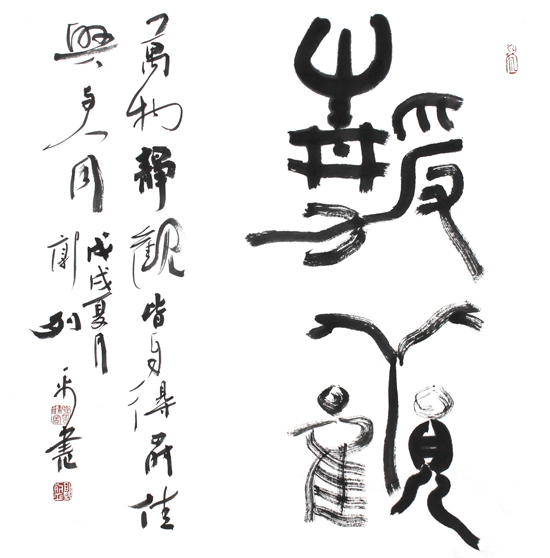 靜觀
萬物靜觀皆自得四時佳
興與人同
戊戌夏月
書